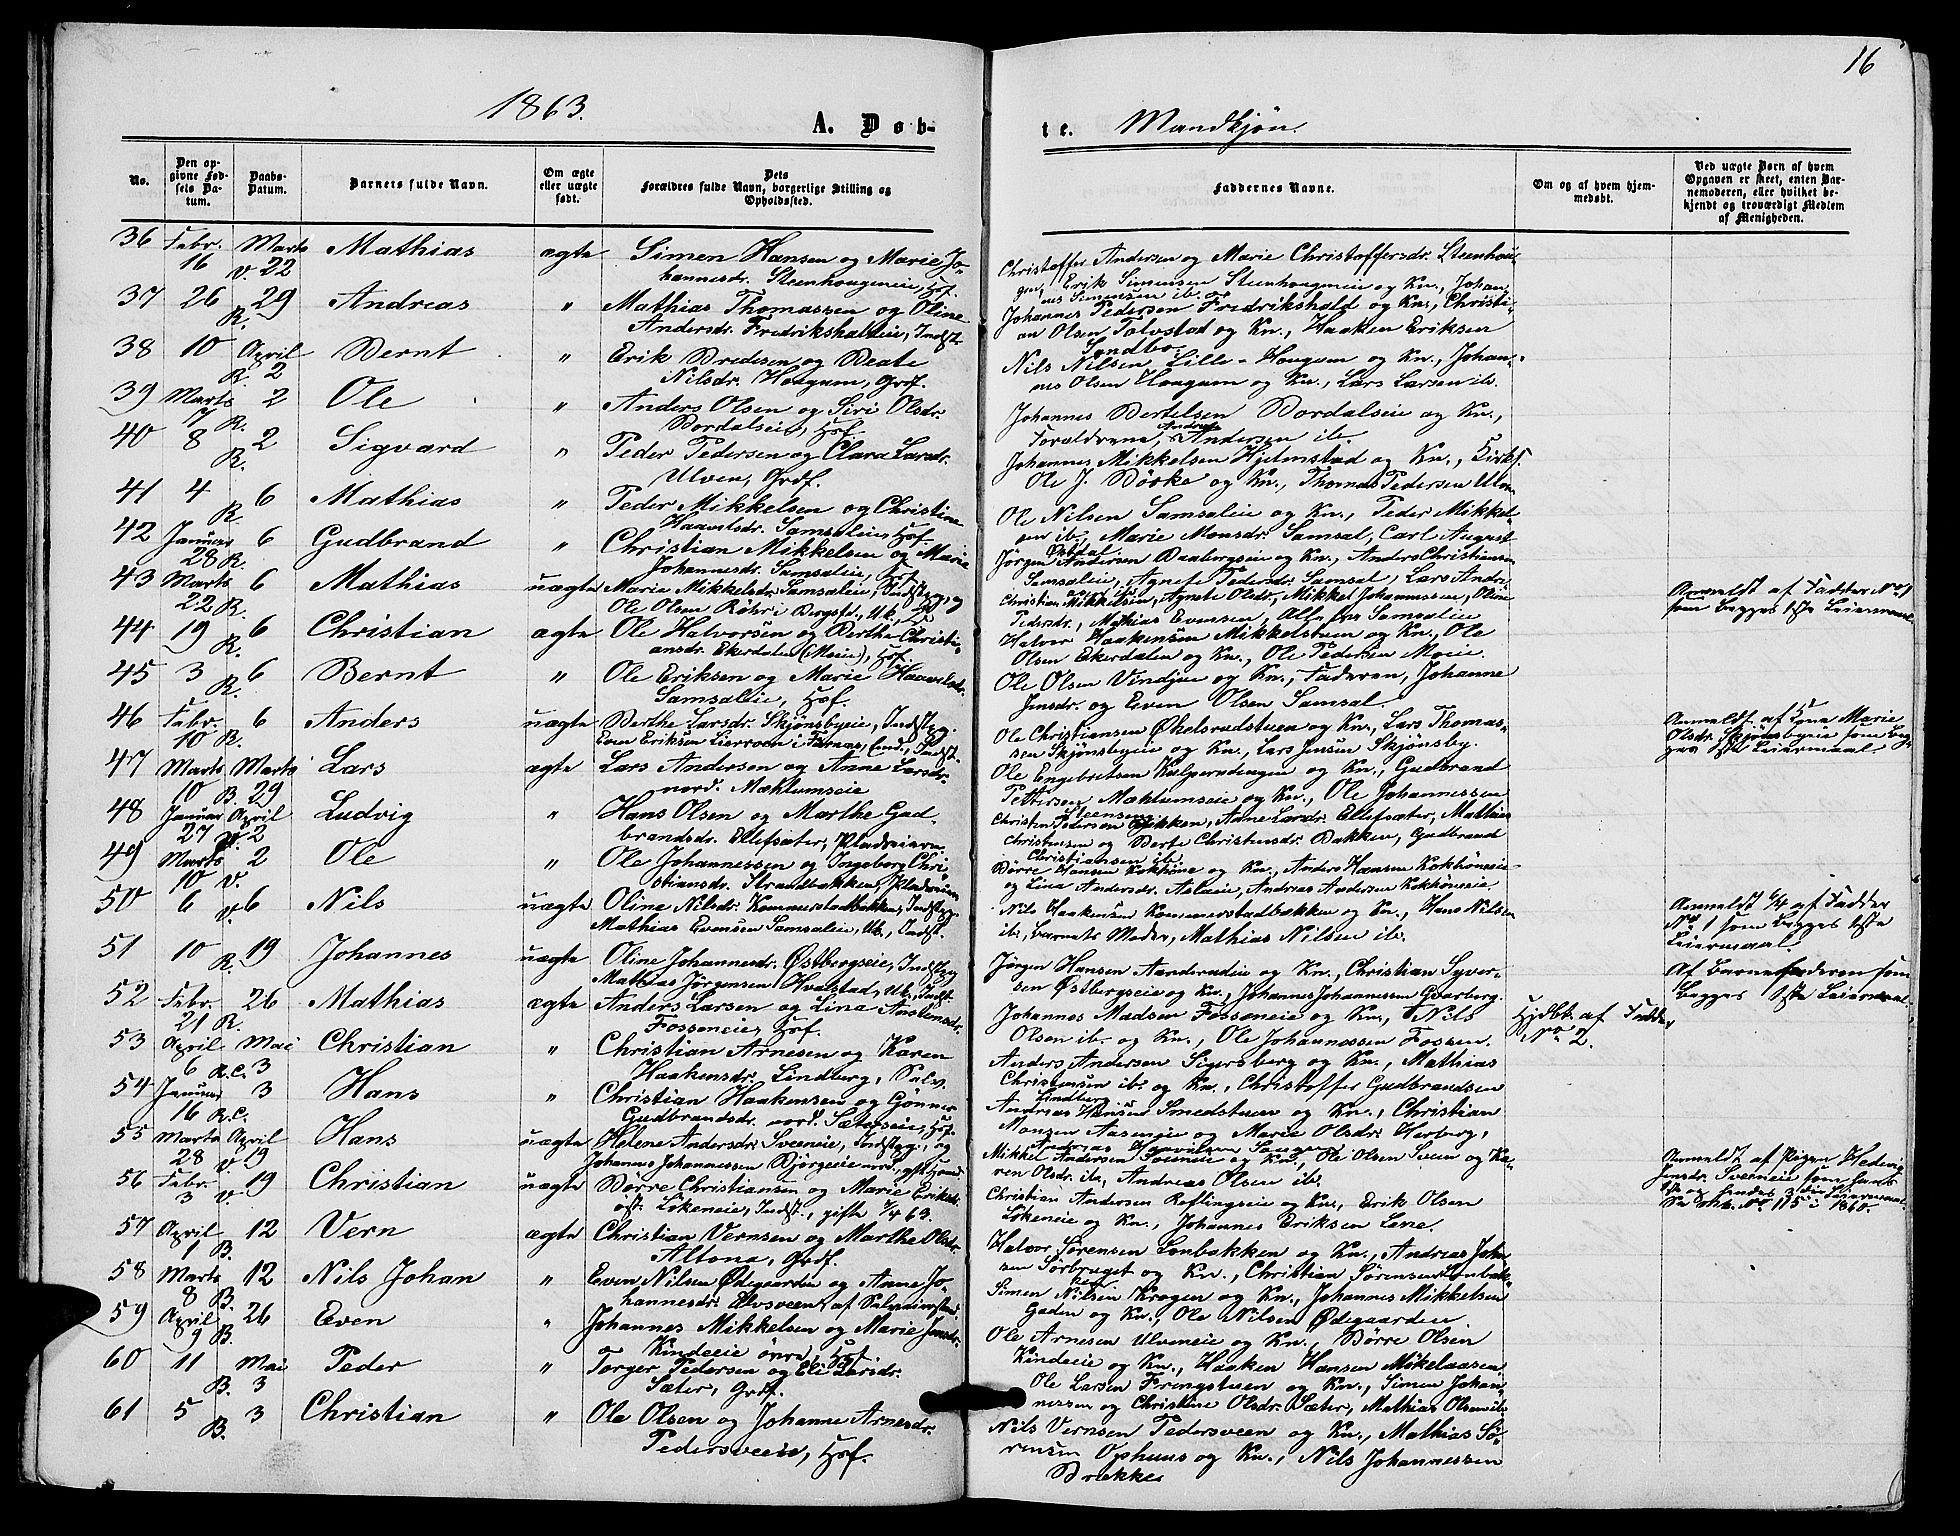 16
1863.
A. Døb-
te. Mandkjøn.
No.
Den op-
givne Fød-
sels Da-
tum.
Daabs-
Datum.
Barnets fulde Navn.
Om ægte
eller uægte
født.
Dets
Forældres fulde Navn, borgerlige Stilling og
Opholdssted.
Faddernes Navne.
Om og af hvem hjem-
medøbt.
Ved uægte Børn af hvem
Opgaven er skeet, enten Bar-
nemoderen, eller hvilket be-
kjendt og troværdigt Medlem
af Menigheden.
36 Febr. 16 Marts V. 22 Mathias ægte Simen Hansen og Marie Jo-
hannesdr. Steenhougeneie, Hsf.
Christoffer Andersen og Marie Christoffersdr. Steenhou-
gen, Erik Simensen Steenhougeneie og Kn., Johan-
nes Simensen ib.
37 26 R. 29 Andreas " Mathias Thomassen og Oline
Andersdr. Fredrikshaldeie, Indst.
Johannes Pedersen Fredrikshald og Kn., Christi-
an Olsen Tolvstad og Kn., Haaken Eriksen
38 10 April R. 2 Bernt " Erik Bredesen og Beate
Nilsdr. Hougum, Grdf.
Nils Nilsen Lille-Hougum og Kn., Johan-
nes Olsen Hougum og Kn., Lars Larsen ib.
39 Marts 7 R. 2 Ole " Anders Olsen og Siri Olsdr.
Bordalseie, Hsf.
Johannes Bertelsen Bordalseie og Kn.,
Forældrene, Andreas Andersen ib.
40 8 R. 2 Sigvard " Peder Pedersen og Clara Larsdr.
Ulven, Grdf.
Johannes Mikkelsen Hjelmstad og Kn., Kirks.
Ole J. Børke og Kn., Thomas Pedersen Ulven
41 4 R. 6 Mathias " Peder Mikkelsen og Christine
Haavelsdr. Samsaleie, Hsf.
Ole Nilsen Samsaleie og Kn., Peder Mikkel-
sen ib., Marie Monsdr. Samsal, Carl August
Østdal.
42 Januar 28 R. 6 Gudbrand " Christian Mikkelsen og Marie
Johannesdr. Samsaleie, Hsf.
Jørgen Andersen Baabergseie og Kn., Anders Christiansen
Samsaleie, Agnete Pedersdr. Samsal, Lars Andr.
43 Marts 22 R. 6 Mathias uægte Marie Mikkelsdr. Samsaleie, Indstpg., og
Ole Olsen Røhri Bergsf., Uk.,
Christian Mikkelsen, Agnete Olsdr., Mikkel Johannessen, Oline
Pedersdr., Mathias Evensen, Alle fra Samsaleie
Anmeldt af Fadder No. 1
som Begges 1ste Leiermaal.
44 19 R. 6 Christian ægte Ole Halvorsen og Berthe Christi-
ansdr. Ekerdalen (Moeie), Hsf.
Halvor Haakensen Mikkelstuen og Kn., Ole
Olsen Ekerdalen og Kn., Ole Pedersen Moeie.
45 3 R. 6 Bernt " Ole Eriksen og Marie Haavelsdr.
Samsaleie, Hsf.
Ole Olsen Vendjue og Kn., Faderen, Johanne
Jensdr. og Even Olsen Samsal.
46 Febr. 10 R. 6 Anders uægte Berthe Larsdr. Skjønsbyeie, Indstpg.
Even Eriksen Lierroen i Furnæs, Emd., Indst.
Ole Christiansen Økelsrudstuen og Kn., Lars Thomas-
sen Skjønsbyeie og Kn., Lars Jensen Skjønsby.
Anmeldt af Marie
Olsdr. Skjønsbyeie som Beg-
ges 1ste Leiermaal
47 Marts 10 B. Marts 29 Lars ægte Lars Andersen og Anne Larsdr.
nord. Mæhlumseie
Ole Engebretsen Kulperudengen og Kn., Gudbrand
Pettersen Mæhlumseie og Kn., Ole Johannessen
Steensen
48 Januar 27 April V. 2 Ludvig " Hans Olsen og Marthe Gud-
brandsdr. Ellefsæter, Pladseiere
Christen Pedersen Bakken, Anne Larsdr. Ellefsæter, Mathias
Christensen og Berte Christensdr. Bakken, Gudbrand
Christiansen ib.
49 Marts 10 V. 2 Ole " Ole Johannessen og Ingeborg Chri-
stiansdr. Strandbakken, Pladseiere
Børre Hansen Kokhøne og Kn., Anders Hansen Kokhøneeie
og Lina Andersdr. Aslaeie, Andreas Andersen Kokhøneeie.
50 6 V. 6 Nils uægte Oline Nilsdr. Kommerstadbakken, Indstpg.
Mathias Evensen Samsaleie, Uk., Indst.
Nils Haakensen Kommerstadbakken og Kn., Hans Nilsen
ib., Barnets Moder, Mathias Nilsen ib.
Anmeldt 6/4 af Fadder
No. 1 som Begges 1ste
Leiermaal.
51 10 R. 19 Johannes uægte Oline Johannesdr. Østbergseie, Indstpg
Mathias Jørgensen Hvalstad, Uk., Indst.
Jørgen Hansen Aanderudeie og Kn., Christian Syver-
sen Østbergseie og Kn., Johannes Johannessen Gvarberg.
Af Barnefaderen som
Begges 1ste Leiermaal.
52 Febr. 21 R. 26 Mathias ægte Anders Larsen og Lina Anstensdr.
Fosseneie, Hsf.
Johannes Madsen Fosseneie og Kn., Nils
Olsen ib. og Kn., Ole Johannessen Fossen.
Hjdbt. af Fadder
No. 2.
53 April 6 R.C. Mai 3 Christian " Christian Arnesen og Karen
Haakensdr. Lindberg, Selv.
Anders Andersen Sigersberg og Kn., Mathias
Christensen ib. og Kn., Christoffer Gudbrandsen
Lindberg
54 Januar 16 R.C. 3 Hans " Christian Haakensen og Gønner
Gudbrandsdr. nord. Sæterseie, Hsf.
Andreas Hansen Smedstuen og Kn., Christian
Monsen Aaseneie og Marie Olsdr. Herberg,
55 Marts 28 April V. 19 Hans uægte Helene Andersdr. Sveeneie, Indstpg., og
Johannes Johannessen Bjørgeeie nord., gift Huusm.
Mikkel Andersen Tueneie og Kn., Ole Olsen Tuen og Ka-
ren Olsdr. ib., Andreas Olsen ib.
Anmeldt af Pigen Hedevig
Jensdr. Sveeneie som hans
No. 115 i 1860.
56 Febr. 3 V. 19 Christian uægte Børre Christiansen og Marie Eriksdr.
øst. Løkeneie, Indst., gifte 7/4 63.
Christian Andersen Reflingseie og Kn., Erik Olsen
Løkeneie og Kn., Johannes Eriksen Lene.
57 April 1 B. 12 Vern ægte Christian Vernsen og Marthe Olsdr.
Altona, Grdf.
Halvor Sørensen Lonbakken og Kn., Andreas Johan-
sen Sørbryget og Kn., Christian Sørensen Lonbak-
ken
58 Marts 8 B. 12 Nils Johan " Even Nilsen Ødegaarden og Anne Jo-
hannesdr. Elvsveen, af Selveierstand.
Simen Nilsen Krogen og Kn., Johannes Mikkelsen
Gaden og Kn., Ole Nilsen Ødegaarden
59 April 9 B. 26 Even " Johannes Mikkelsen og Marie Jensdr.
Kindeeie øvre, Hsf.
Ole Arnesen Ulvneie og Kn., Børre Olsen
Kindeeie og Kn., Haaken Hansen Mikelaasen
60 11 Mai B. 3 Peder " Torger Pedersen og Eli Larsdr.
Sæter, Grdf.
Ole Larsen Fringstuen og Kn., Simen Johan-
nessen og Christine Olsdr. Sæter, Mathias Olsen ib.
61 5 B. 3 Christian " Ole Olsen og Johanne Arnesdr.
Pedersveeie, Hsf.
Nils Vernsen Pedersveen og Kn., Mathias Sø-
rensen Ophuus og Kn., Nils Johannessen
Brække